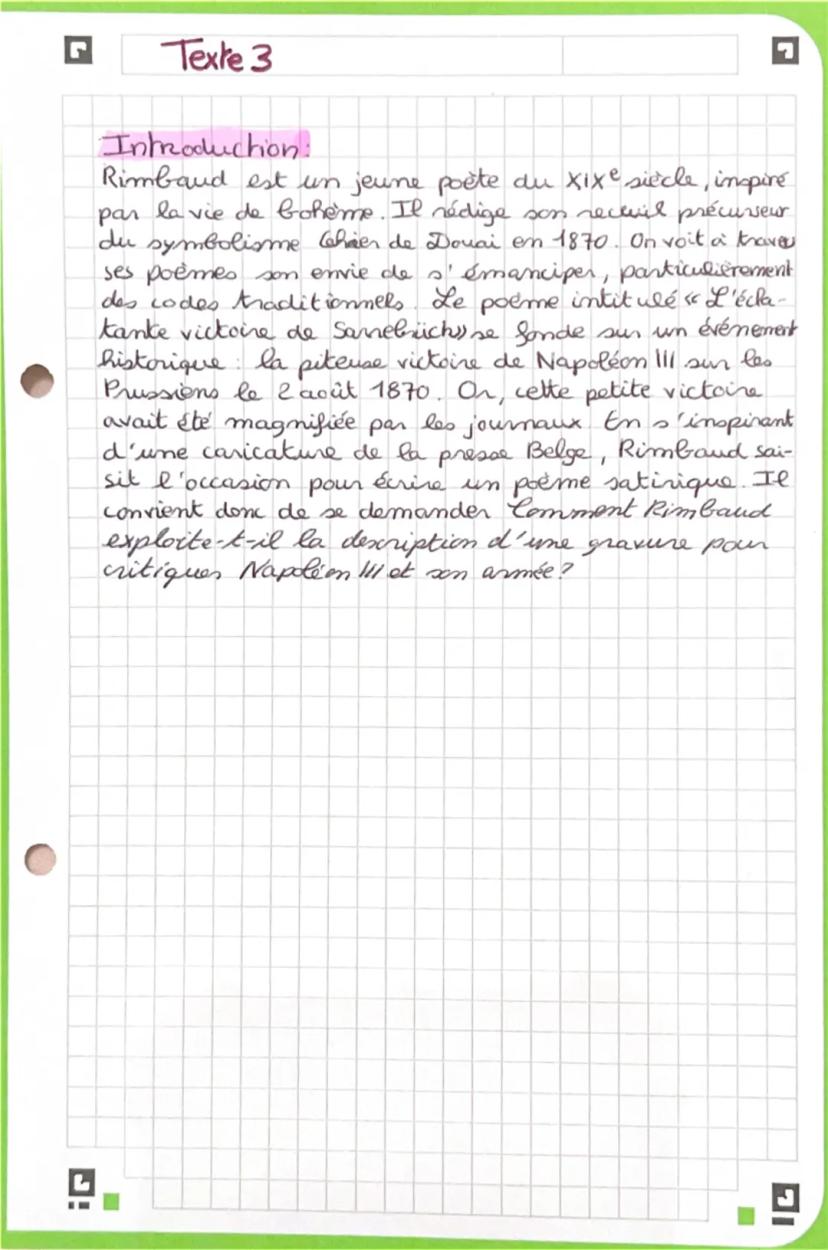 Texte 3
Introduction:
Rimbaud est un jeune poète du XIXe siècle, inspiré
par la vie de bohème. Il rédige son recueil précurseur
du symbolisme Cahier de Douai en 1870. On voit à travers
ses poèmes son envie de s'émanciper, particulièrement
des codes traditionnels. Le poème intitulé « L'écla-
tante victoire de Sarrebrück» se fonde sur un événement
historique : la piteuse victoire de Napoléon III sur les
Prussiens le 2 août 1870. Or, cette petite victoire
avait été magnifiée par les journaux. En s'inspirant
d'une caricature de la presse Belge, Rimbaud sai-
sit l'occasion pour écrire un poème satirique. Il
convient donc de se demander Comment Rimbaud
exploite-t-il la description d'une gravure pour
critiquer Napoléon III et son armée?